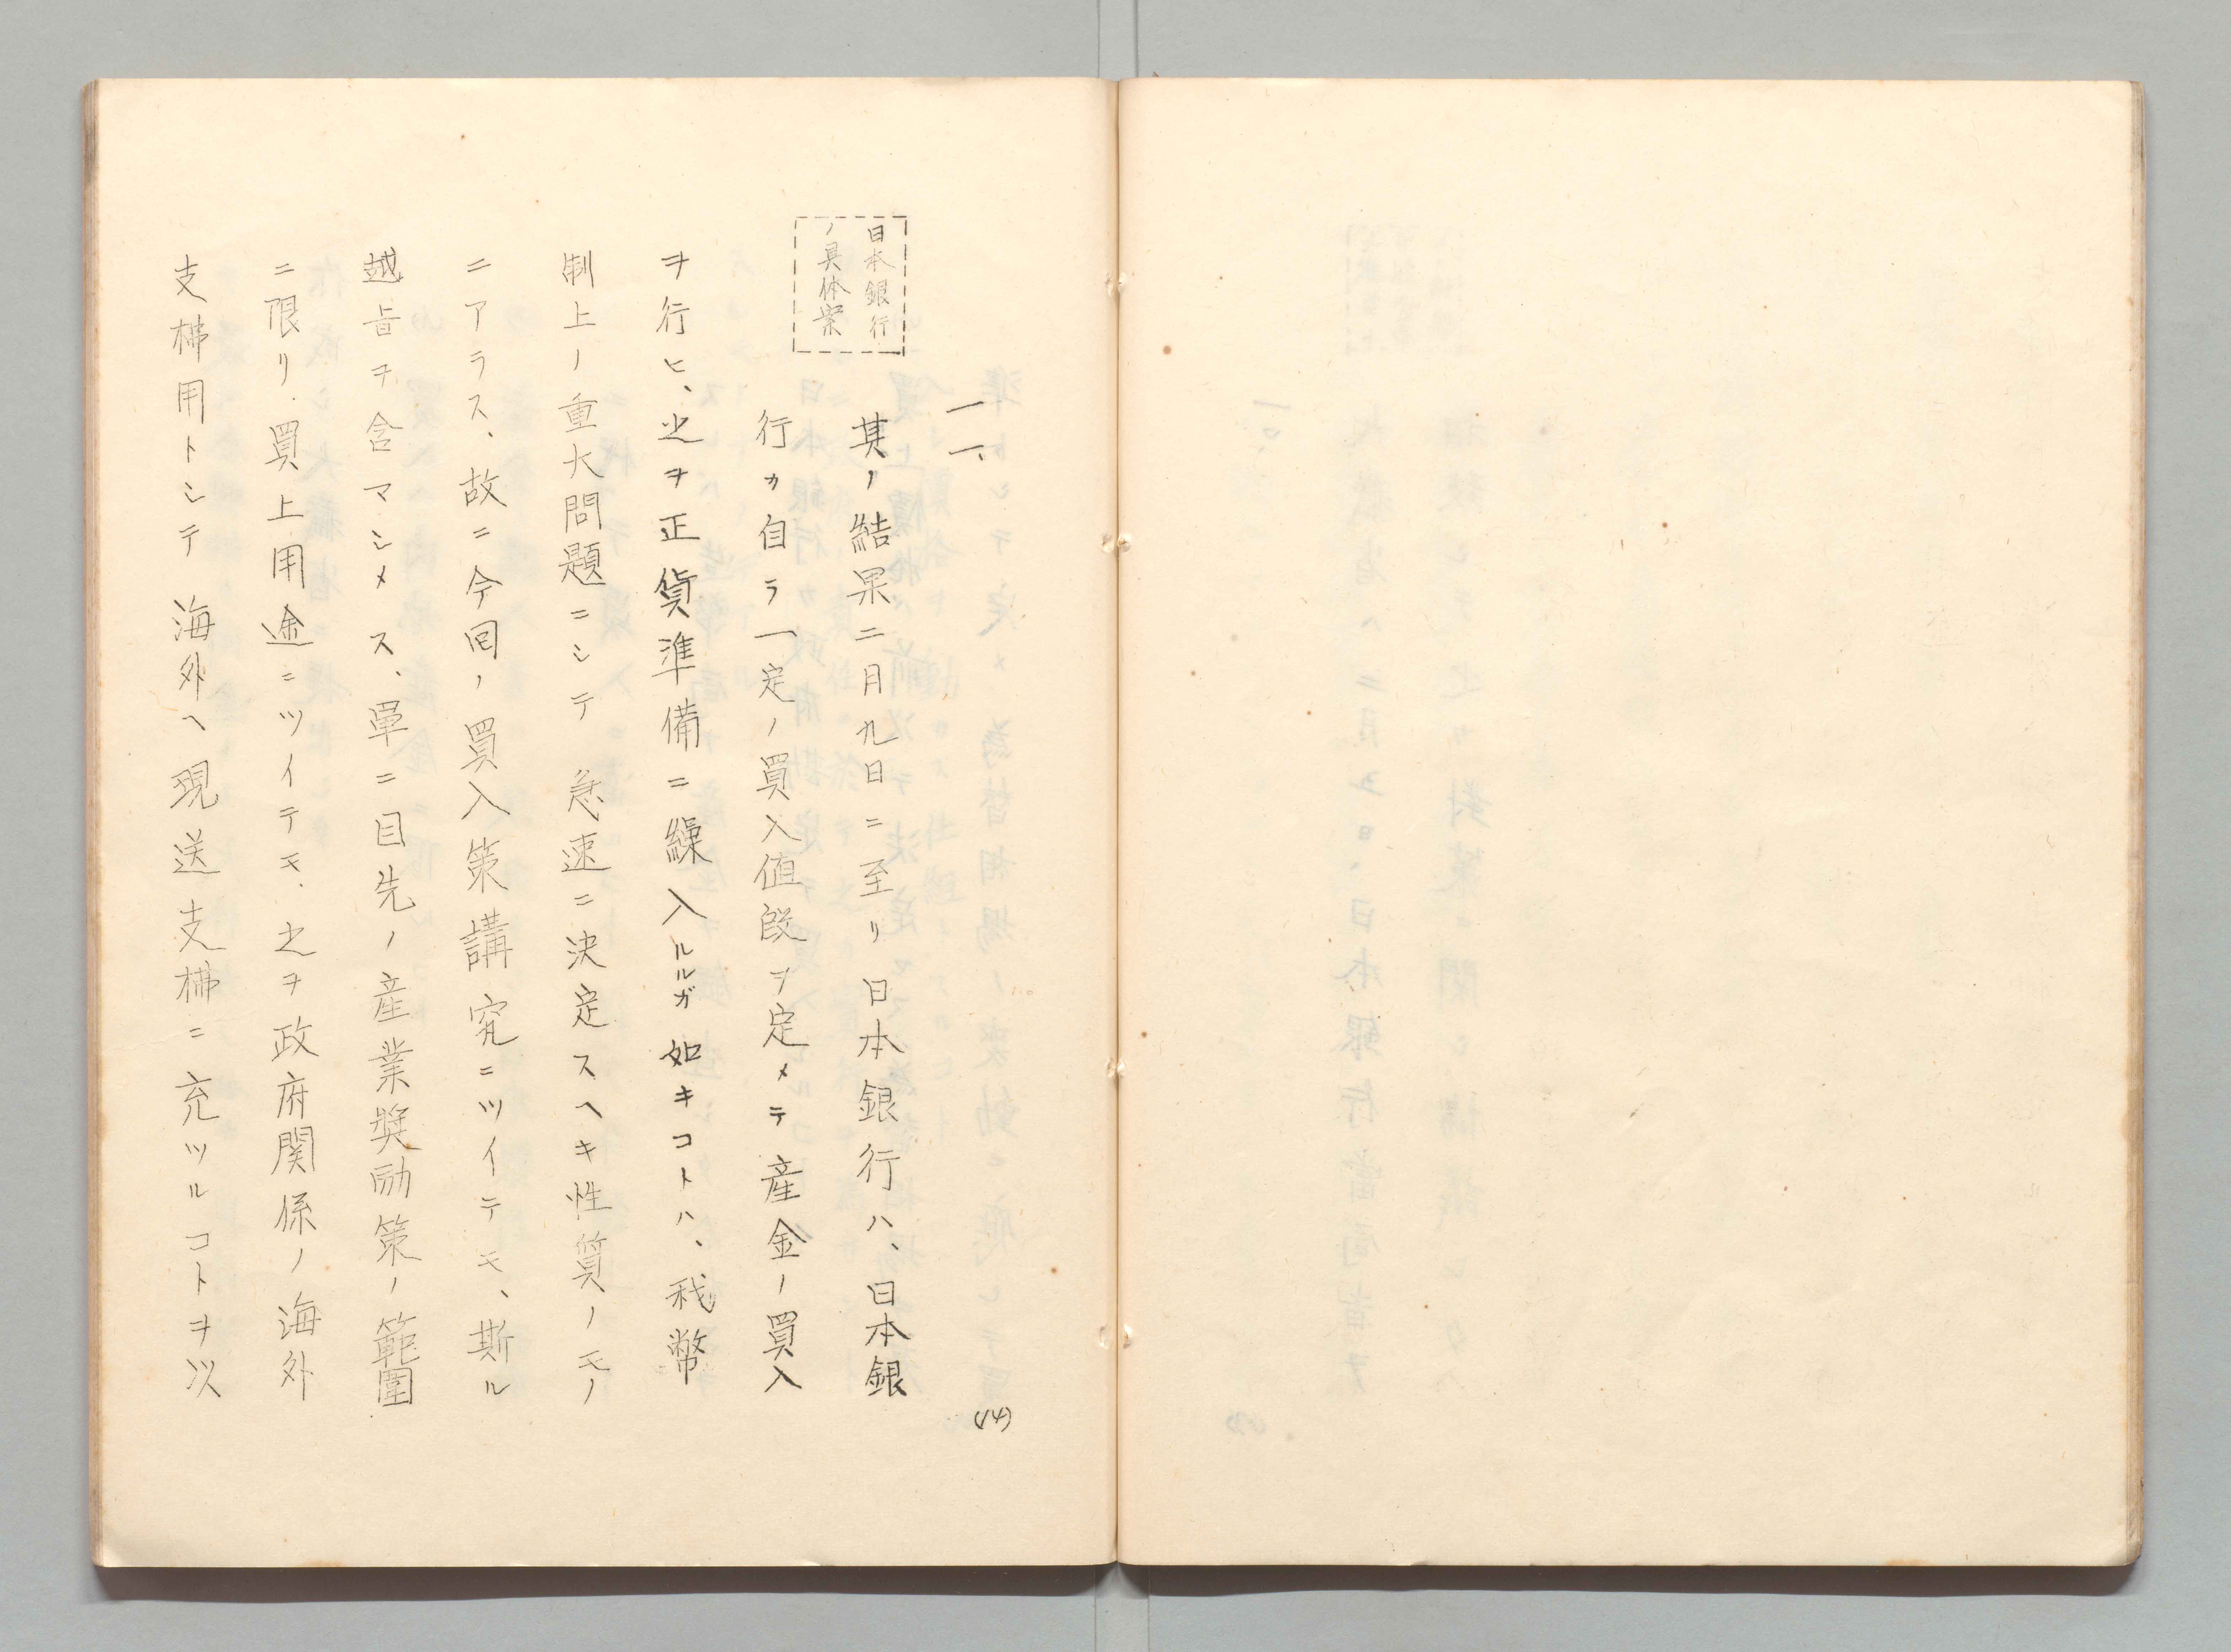 一一、
日本銀行
ノ具体案
其ノ結果二月九日ニ至リ日本銀行ハ、日本銀
行カ自ラ一定ノ買入値段ヲ定メテ産金ノ買入
ヲ行ヒ、之ヲ正貨準備ニ繰入ルルガ如キコトハ、我幣
制上ノ重大問題ニシテ急速ニ決定スヘキ性質ノモノ
ニアラス、故ニ今回ノ買入策講究ニツイテモ、斯ル
趣旨ヲ含マシメス、単ニ目先ノ産業奨励策ノ範囲
ニ限リ買上用途ニツイテモ、之ヲ政府関係ノ海外
支拂用トシテ海外ヘ現送支拂ニ充ツルコトヲ以
(14)